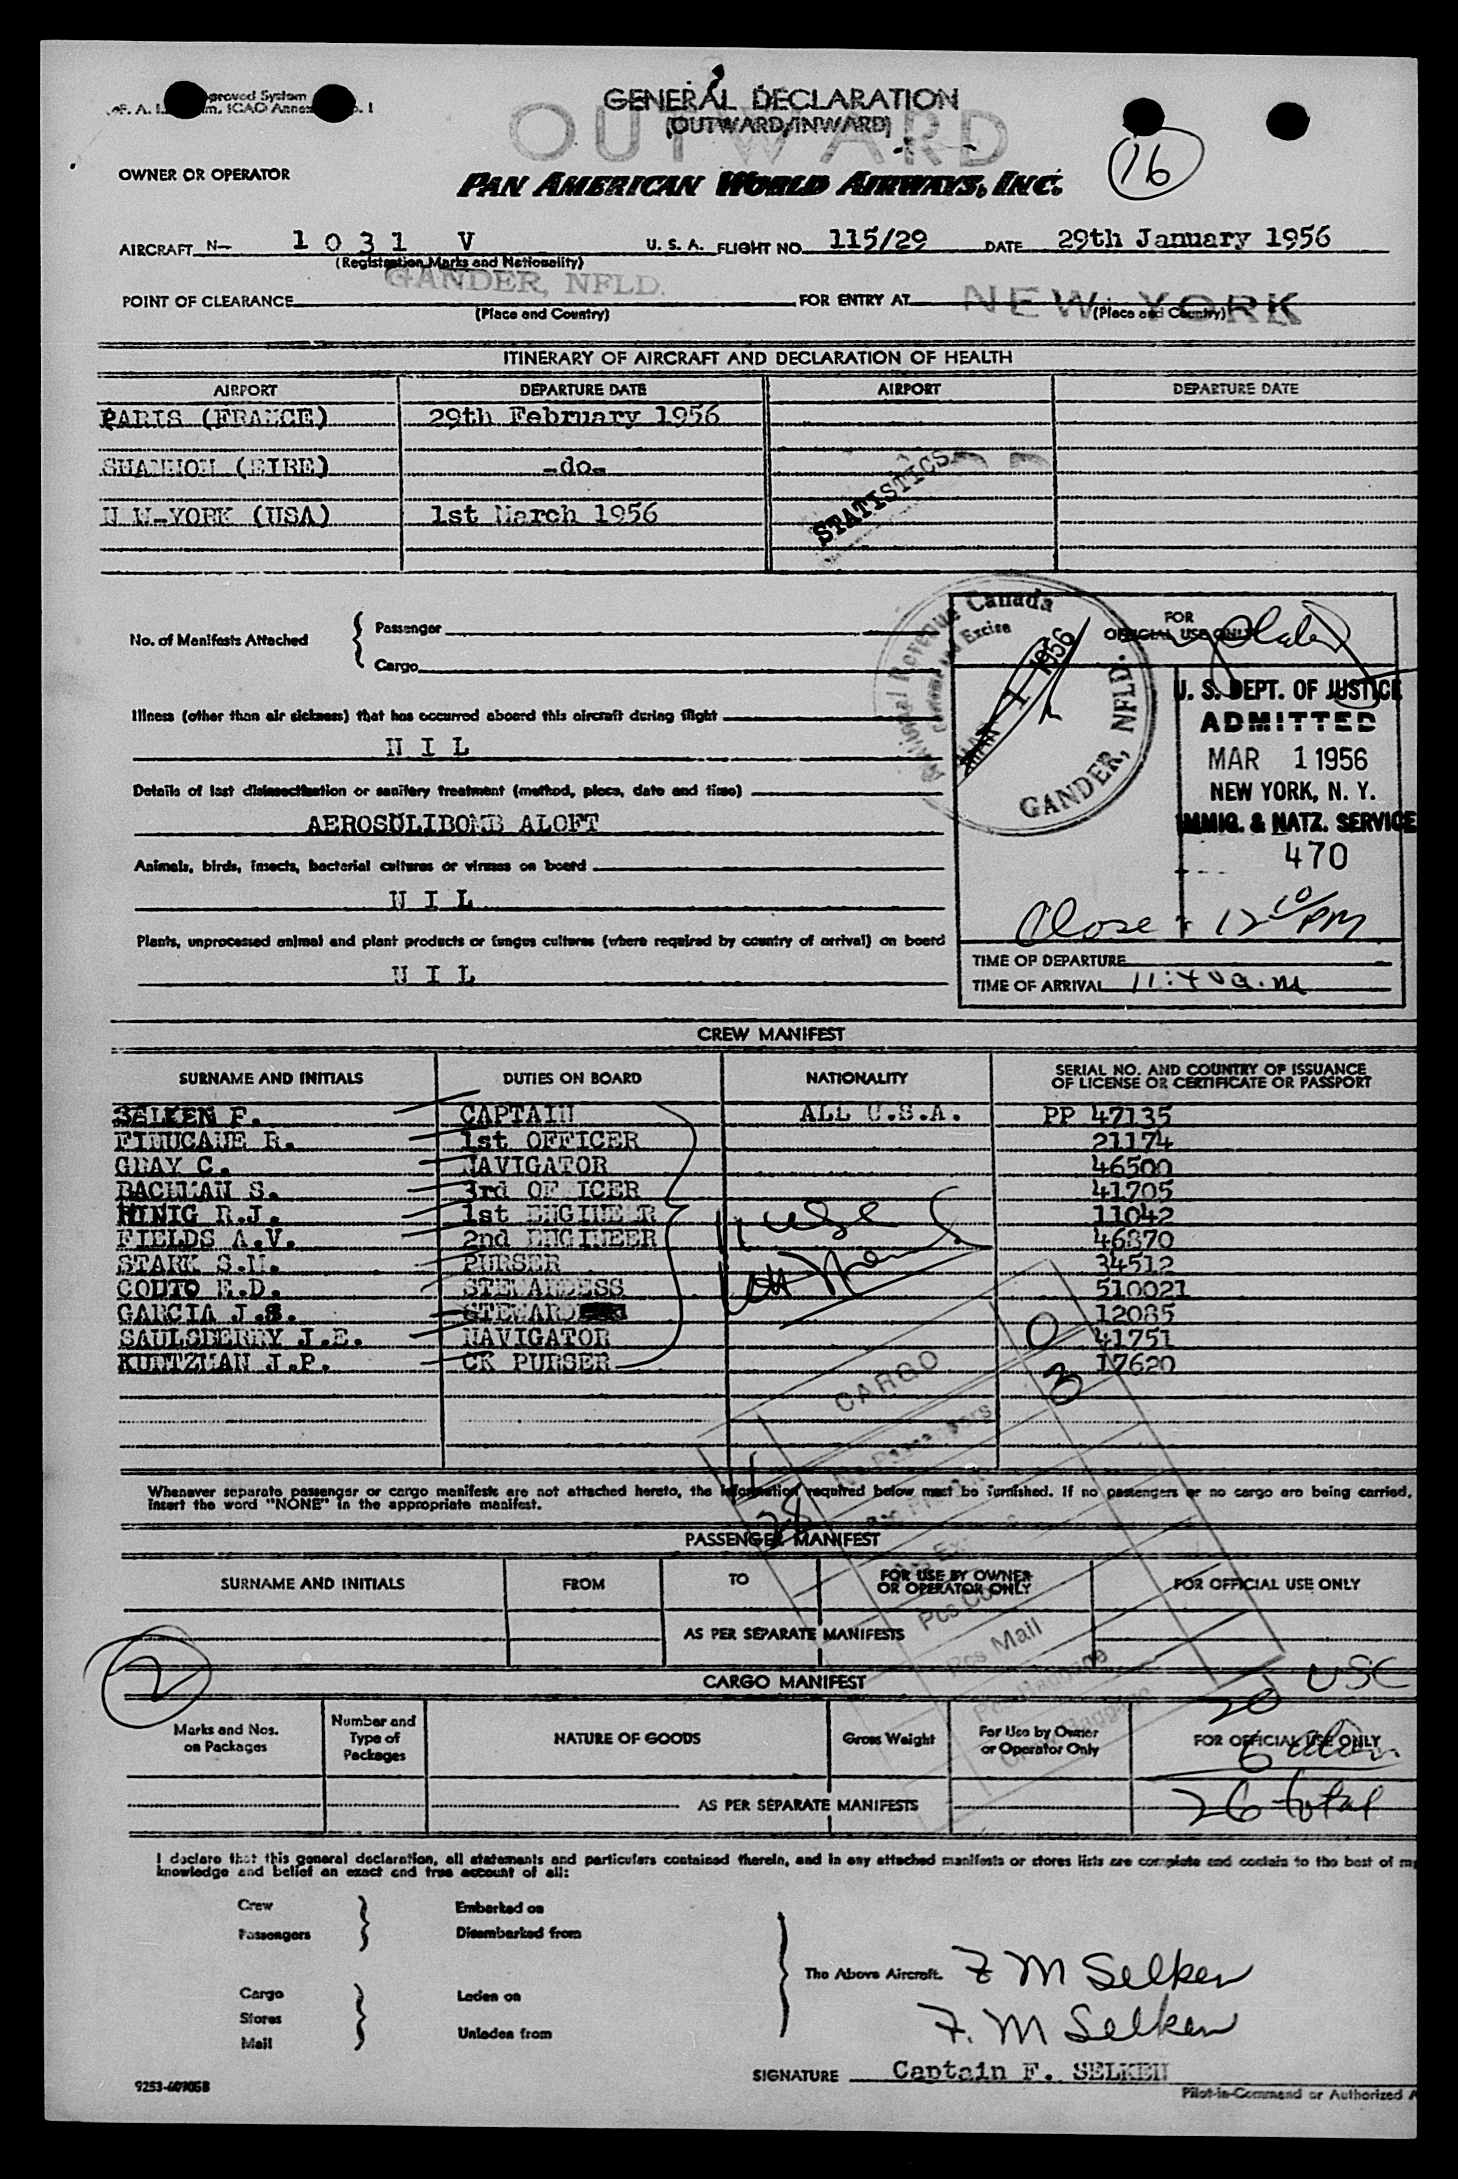 GENERAL DECLARATION
(OUTWARD/INWARD)
OUTWARD
16
OWNER OR OPERATOR
PAN AMERICAN WORLD AIRWAYS, INC.
AIRCRAFT N- 1 0 3 1 V U. S. A. FLIGHT NO. 115/29 DATE 29th January 1956
(Registration Marks and Nationality)
POINT OF CLEARANCE GANDER, NFLD. FOR ENTRY AT NEW YORK
(Place and Country) (Place and Country)
ITINERARY OF AIRCRAFT AND DECLARATION OF HEALTH
AIRPORT DEPARTURE DATE AIRPORT DEPARTURE DATE
PARIS (FRANCE) 29th February 1956
SHANNON (EIRE) -do-
N W-YORK (USA) 1st March 1956
STATISTICS
No. of Manifests Attached
Passenger
Cargo
National Revenue Canada
Customs and Excise
MAR 1 1956
GANDER, NFLD.
FOR
OFFICIAL USE ONLY
U. S. DEPT. OF JUSTICE
ADMITTED
MAR 1 1956
NEW YORK, N. Y.
IMMIG. & NATZ. SERVICE
470
Illness (other than air sickness) that has occurred aboard this aircraft during flight
N I L
Details of last disinsectization or sanitary treatment (method, place, date and time)
AEROSOLIBOMB ALOFT
Animals, birds, insects, bacterial cultures or viruses on board
N I L
Plants, unprocessed animal and plant products or fungus cultures (where required by country of arrival) on board
N I L
Close 12 10/PM
TIME OF DEPARTURE
TIME OF ARRIVAL 11:40 a.m
CREW MANIFEST
SURNAME AND INITIALS DUTIES ON BOARD NATIONALITY SERIAL NO. AND COUNTRY OF ISSUANCE
OF LICENSE OR CERTIFICATE OR PASSPORT
SELKEN F. CAPTAIN ALL U.S.A. PP 47135
FINUCANE R. 1st OFFICER 21174
GRAY C. NAVIGATOR 46500
BACHMAN S. 3rd OF ICER 41705
HINIG R.J. 1st ENGINEER 11042
FIELDS A.V. 2nd ENGINEER 46870
STARK S.N. PURSER 34512
COUTO E.D. STEWARDESS 510021
GARCIA J.S. STEWARD 12085
SAULSBERRY J.E. NAVIGATOR 41751
KUNTZMAN J.P. CK PURSER 17620
0
3
CARGO
Pcs Mail
1
28
Whenever separate passenger or cargo manifests are not attached hereto, the information required below must be furnished. If no passengers or no cargo are being carried,
insert the word "NONE" in the appropriate manifest.
PASSENGER MANIFEST
SURNAME AND INITIALS FROM TO FOR USE BY OWNER
OR OPERATOR ONLY FOR OFFICIAL USE ONLY
AS PER SEPARATE MANIFESTS
2
CARGO MANIFEST
20 USC
Marks and Nos.
on Packages
Number and
Type of
Packages
NATURE OF GOODS
Gross Weight
For Use by Owner
or Operator Only
FOR OFFICIAL USE ONLY
6 alien
26 total
AS PER SEPARATE MANIFESTS
I declare that this general declaration, all statements and particulars contained therein, and in any attached manifests or stores lists are complete and contain to the best of my
knowledge and belief an exact and true account of all:
Crew
Passengers
Embarked on
Disembarked from
Cargo
Stores
Mail
Laden on
Unladen from
The Above Aircraft.
F M Selken
F. M Selken
SIGNATURE Captain F. SELKEN
Pilot-in-Command or Authorized A